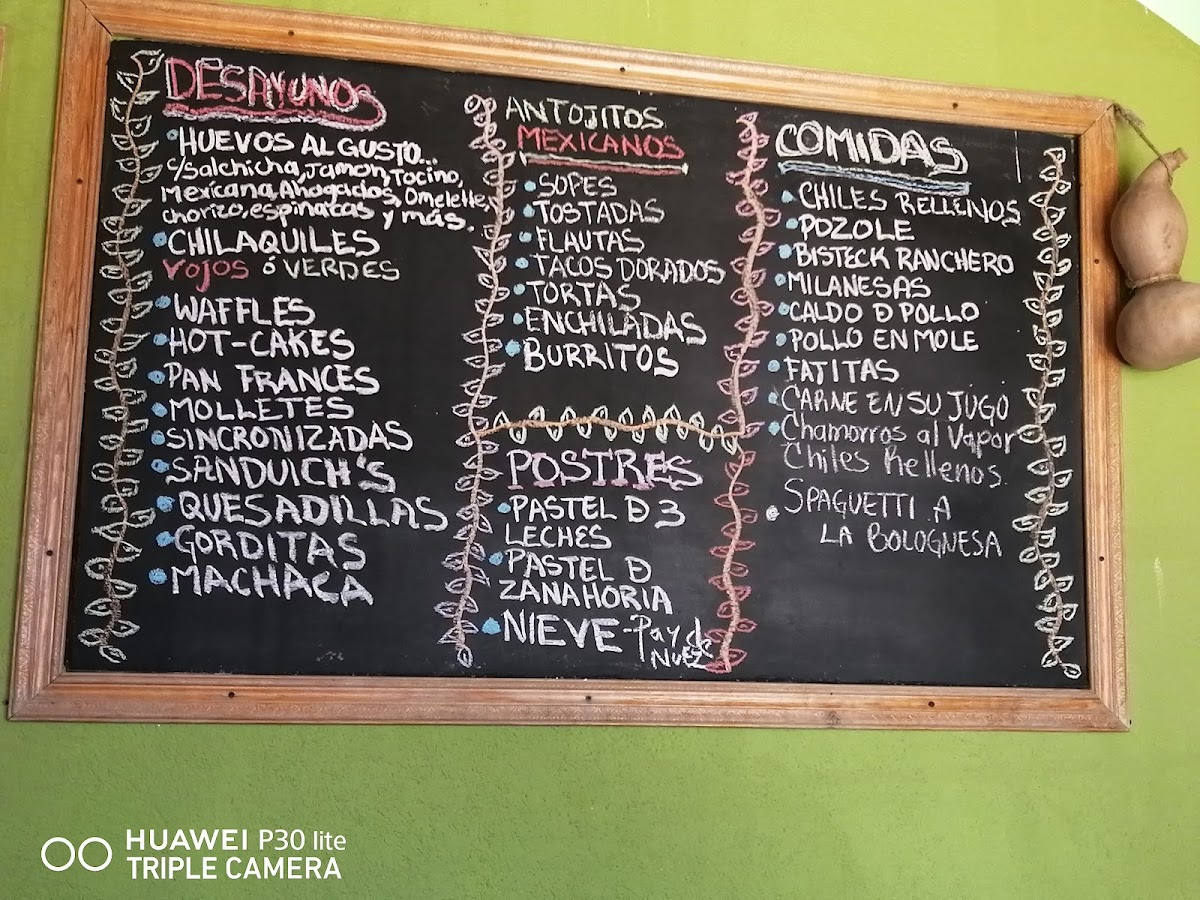 DESAYUNOS
HUEVOS AL GUSTO...
c/Salchicha, Jamon, Tocino,
Mexicana, Ahogados, Omelette,
chorizo, espinacas y más.
CHILAQUILES
rojos ó VERDES
WAFFLES
HOT-CAKES
PAN FRANCES
MOLLETES
SINCRONIZADAS
SANDUICH'S
QUESADILLAS
GORDITAS
MACHACA
ANTOJITOS
MEXICANOS
SOPES
TOSTADAS
FLAUTAS
TACOS DORADOS
TORTAS
ENCHILADAS
BURRITOS
POSTRES
PASTEL D 3
LECHES
PASTEL D
ZANAHORIA
NIEVE - Pay de
NUEZ
COMIDAS
CHILES RELLENOS
POZOLE
BISTECK RANCHERO
MILANESAS
CALDO D POLLO
POLLO EN MOLE
FAJITAS
CARNE EN SU JUGO
Chamorros al Vapor
Chiles Rellenos.
SPAGUETTI A
LA BOLOGNESA
HUAWEI P30 lite
TRIPLE CAMERA